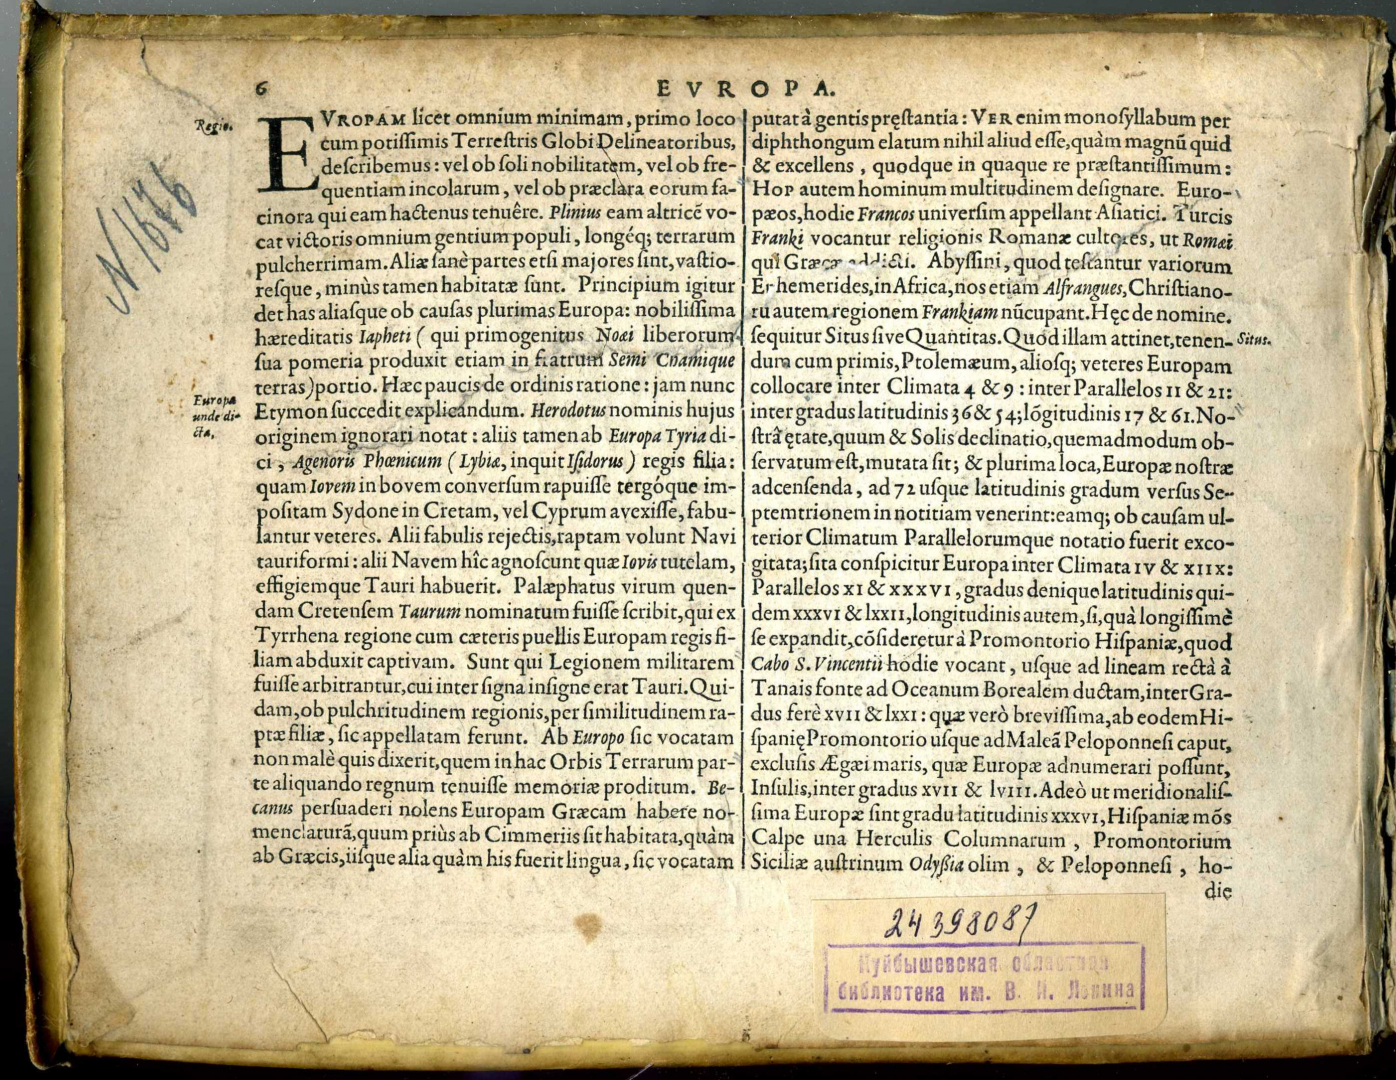 6
EVROPA.
Regio.
N 11676
EVROPAM licet omnium minimam, primo loco
cum potissimis Terrestris Globi Delineatoribus,
describemus: vel ob soli nobilitatem, vel ob fre-
quentiam incolarum, vel ob præclara eorum fa-
cinora qui eam hactenus tenuêre. Plinius eam altricē vo-
cat victoris omnium gentium populi, longéq; terrarum
pulcherrimam. Aliæ sanè partes etsi majores sint, vastio-
resque, minùs tamen habitatæ sunt. Principium igitur
det has aliasque ob causas plurimas Europa: nobilissima
hæreditatis Iapheti ( qui primogenitus Noæi liberorum
sua pomeria produxit etiam in fratrum Semi Chamique
terras) portio. Hæc paucis de ordinis ratione: jam nunc
Europa
unde di-
cta,
Etymon succedit explicandum. Herodotus nominis hujus
originem ignorari notat: aliis tamen ab Europa Tyria di-
ci, Agenoris Phœnicum ( Lybiæ, inquit Isidorus ) regis filia:
quam Iovem in bovem conversum rapuisse tergóque im-
positam Sydone in Cretam, vel Cyprum avexisse, fabu-
lantur veteres. Alii fabulis rejectis, raptam volunt Navi
tauriformi: alii Navem hîc agnoscunt quæ Iovis tutelam,
effigiemque Tauri habuerit. Palæphatus virum quen-
dam Cretensem Taurum nominatum fuisse scribit, qui ex
Tyrrhena regione cum cæteris puellis Europam regis fi-
liam abduxit captivam. Sunt qui Legionem militarem
fuisse arbitrantur, cui inter signa insigne erat Tauri. Qui-
dam, ob pulchritudinem regionis, per similitudinem ra-
ptæ filiæ, sic appellatam ferunt. Ab Europo sic vocatam
non malè quis dixerit, quem in hac Orbis Terrarum par-
te aliquando regnum tenuisse memoriæ proditum. Be-
canus persuaderi nolens Europam Græcam habere no-
menclaturā, quum priùs ab Cimmeriis sit habitata, quàm
ab Græcis, iisque alia quàm his fuerit lingua, sic vocatam
putat à gentis pręstantia: VER enim monosyllabum per
diphthongum elatum nihil aliud esse, quàm magnū quid
& excellens, quodque in quaque re præstantissimum:
HOP autem hominum multitudinem designare. Euro-
pæos, hodie Francos universim appellant Asiatici. Turcis
Franki vocantur religionis Romanæ cultores, ut Romæi
qui Græcæ addicti. Abyssini, quod testantur variorum
Ephemerides, in Africa, nos etiam Alfrangues, Christiano-
rū autem regionem Frankiam nūcupant. Hęc de nomine.
sequitur Situs sive Quantitas. Quod illam attinet, tenen-
Situs.
dum cum primis, Ptolemæum, aliosq; veteres Europam
collocare inter Climata 4 & 9: inter Parallelos 11 & 21:
inter gradus latitudinis 36 & 54; lōgitudinis 17 & 61. No-
strâ ętate, quum & Solis declinatio, quemadmodum ob-
servatum est, mutata sit; & plurima loca, Europæ nostræ
adcensenda, ad 72 usque latitudinis gradum versus Se-
ptemtrionem in notitiam venerint: eamq; ob causam ul-
terior Climatum Parallelorumque notatio fuerit exco-
gitata; sita conspicitur Europa inter Climata IV & XIIX:
Parallelos XI & XXXVI, gradus denique latitudinis qui-
dem XXXVI & lXXII, longitudinis autem, si, quà longissimè
se expandit, cōsideretur à Promontorio Hispaniæ, quod
Cabo S. Vincentii hodie vocant, usque ad lineam rectà à
Tanais fonte ad Oceanum Borealem ductam, inter Gra-
dus ferè XVII & lXXI: quæ verò brevissima, ab eodem Hi-
spanię Promontorio usque ad Maleā Peloponnesi caput,
exclusis Ægæi maris, quæ Europæ adnumerari possunt,
Insulis, inter gradus XVII & lVIII. Adeò ut meridionalis-
sima Europæ sint gradu latitudinis XXXVI, Hispaniæ mōs
Calpe una Herculis Columnarum, Promontorium
Siciliæ austrinum Odyßia olim, & Peloponnesi, ho-
die
24398087
Куйбышевская областная
библиотека им. В. И. Ленина